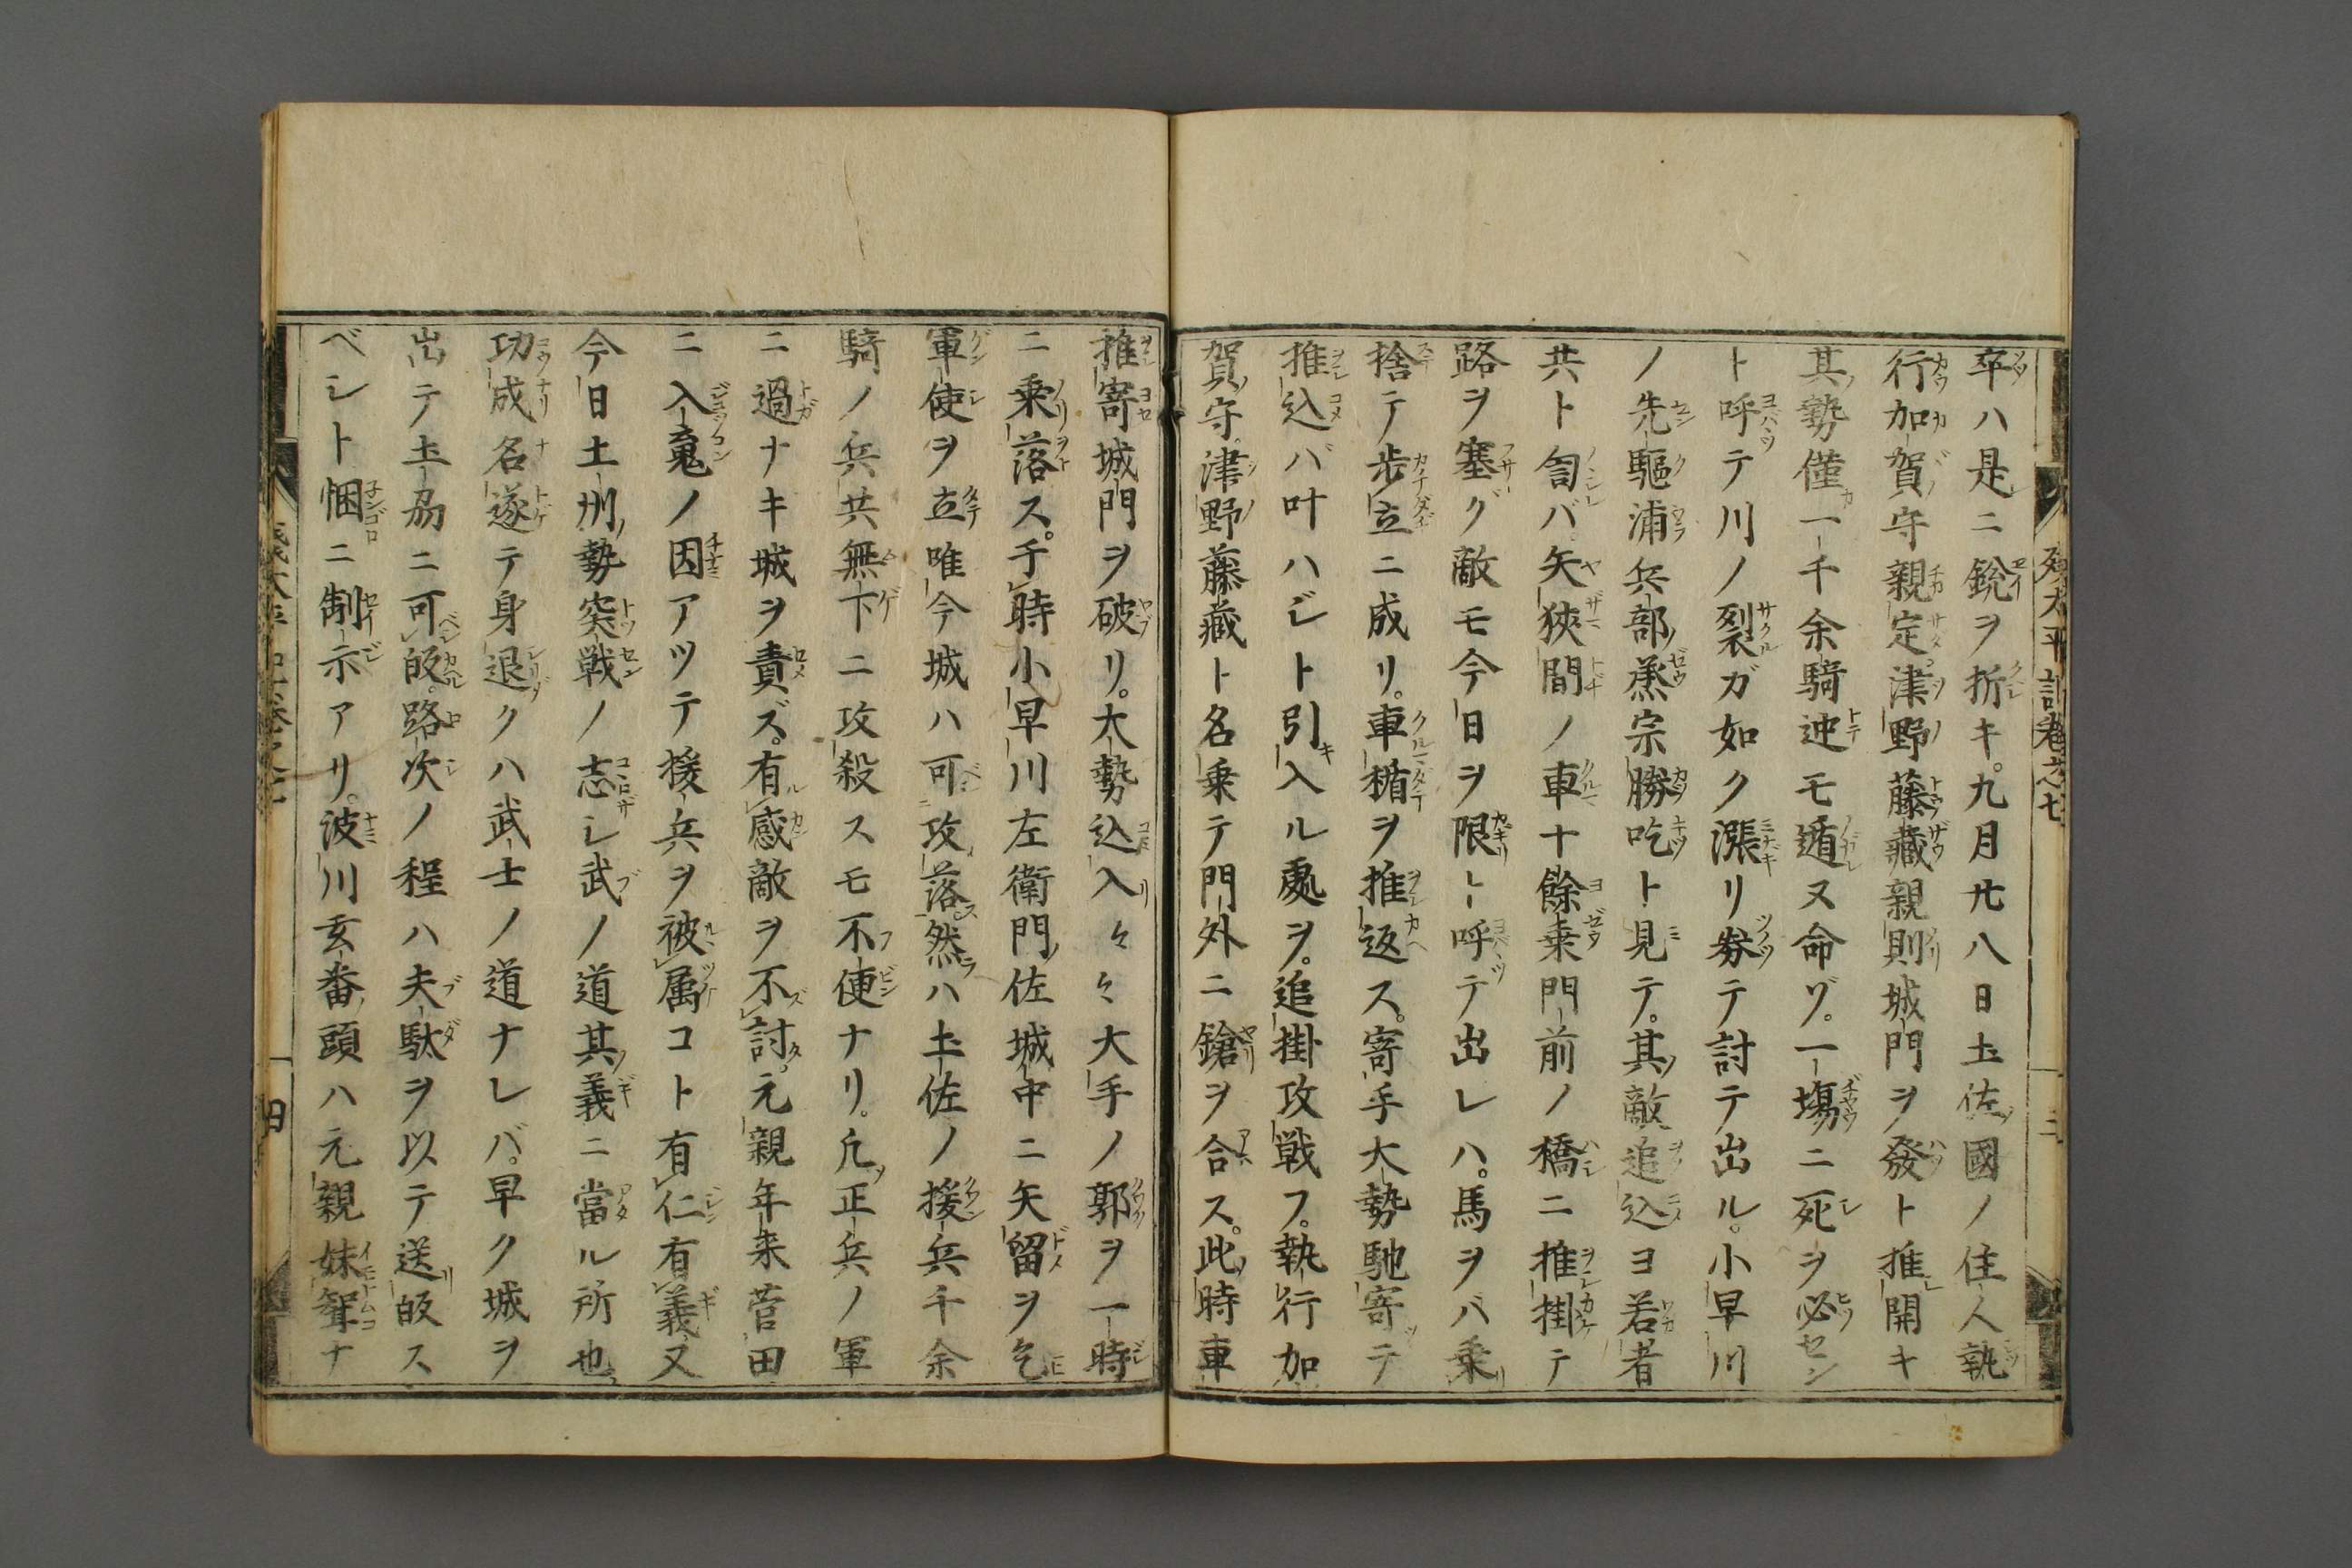 残太平記巻之七
三
卒ハ是ニ銳ヲ折キ。九月廿八日土佐國ノ住人執
行加賀守親定。津野藤藏親則城門ヲ發ト推開キ
其勢僅一千余騎迚モ遁ヌ命ゾ。一場ニ死ヲ必セン
ト呼テ川ノ裂ガ如ク漲リ勞テ討テ出ル。小早川
ノ先驅浦兵部烝宗勝吃ト見テ。其敵追込ヨ若者
共ト訇バ。矢狹間ノ車十餘乗門前ノ橋ニ推掛テ
路ヲ塞グ敵モ今日ヲ限ト呼テ出レハ。馬ヲバ乗
捨テ歩立ニ成リ。車楯ヲ推返ス。寄手大勢馳寄テ
推込バ叶ハジト引入ル處ヲ。追掛攻戦フ。執行加
賀守。津野藤藏ト名乗テ門外ニ鎗ヲ合ス。此時車
推寄城門ヲ破リ。大勢込入々々大手ノ郭ヲ一時
ニ乗落ス。于時小早川左衛門佐城中ニ矢留ヲ乞
軍使ヲ立唯今城ハ可攻落。然ハ土佐ノ援兵千余
騎ノ兵共無下ニ攻殺スモ不便ナリ。凡正兵ノ軍
ニ過ナキ城ヲ責ズ。有感敵ヲ不討。元親年来菅田
ニ入魂ノ因アツテ援兵ヲ被属コト有仁有義又
今日土州勢突戦ノ志シ武ノ道其義ニ當ル所也。
功成名遂テ身退クハ武士ノ道ナレバ。早ク城ヲ
出テ土刕ニ可皈。路次ノ程ハ夫駄ヲ以テ送皈ス
ベシト悃ニ制示アリ。波川玄番頭ハ元親妹聟ナ
四